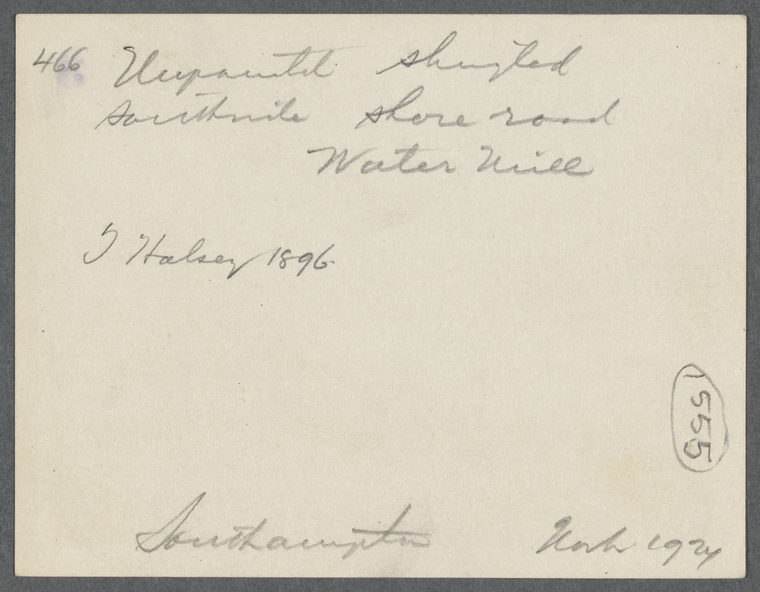 466 Unpainted shingled
southside shore road
Water Mill
J Halsey 1896
1555
Southampton 1924